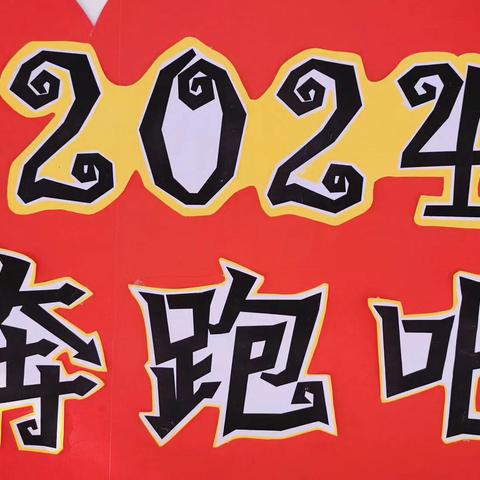 2024
奔跑吧